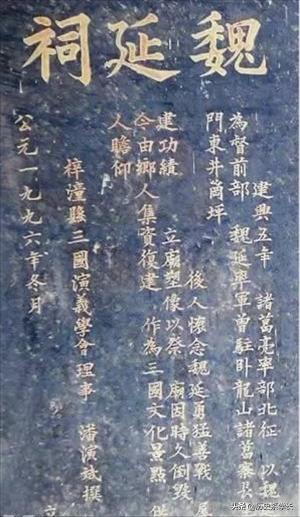 魏延祠
建興五年 諸葛亮率部北征 以魏
為督前部 魏延率軍曾駐卧龍山諸葛寨長
門東井坪
後人懷念魏延勇猛善戰 屢
建功績 立廟塑像以祭 廟因時久倒毀
今由鄉人集資復建 作為三國文化景點 供
人瞻仰
梓潼縣三國演義學會理事 潘演撰
公元一九九六年冬月 立
头条 @历史系学长